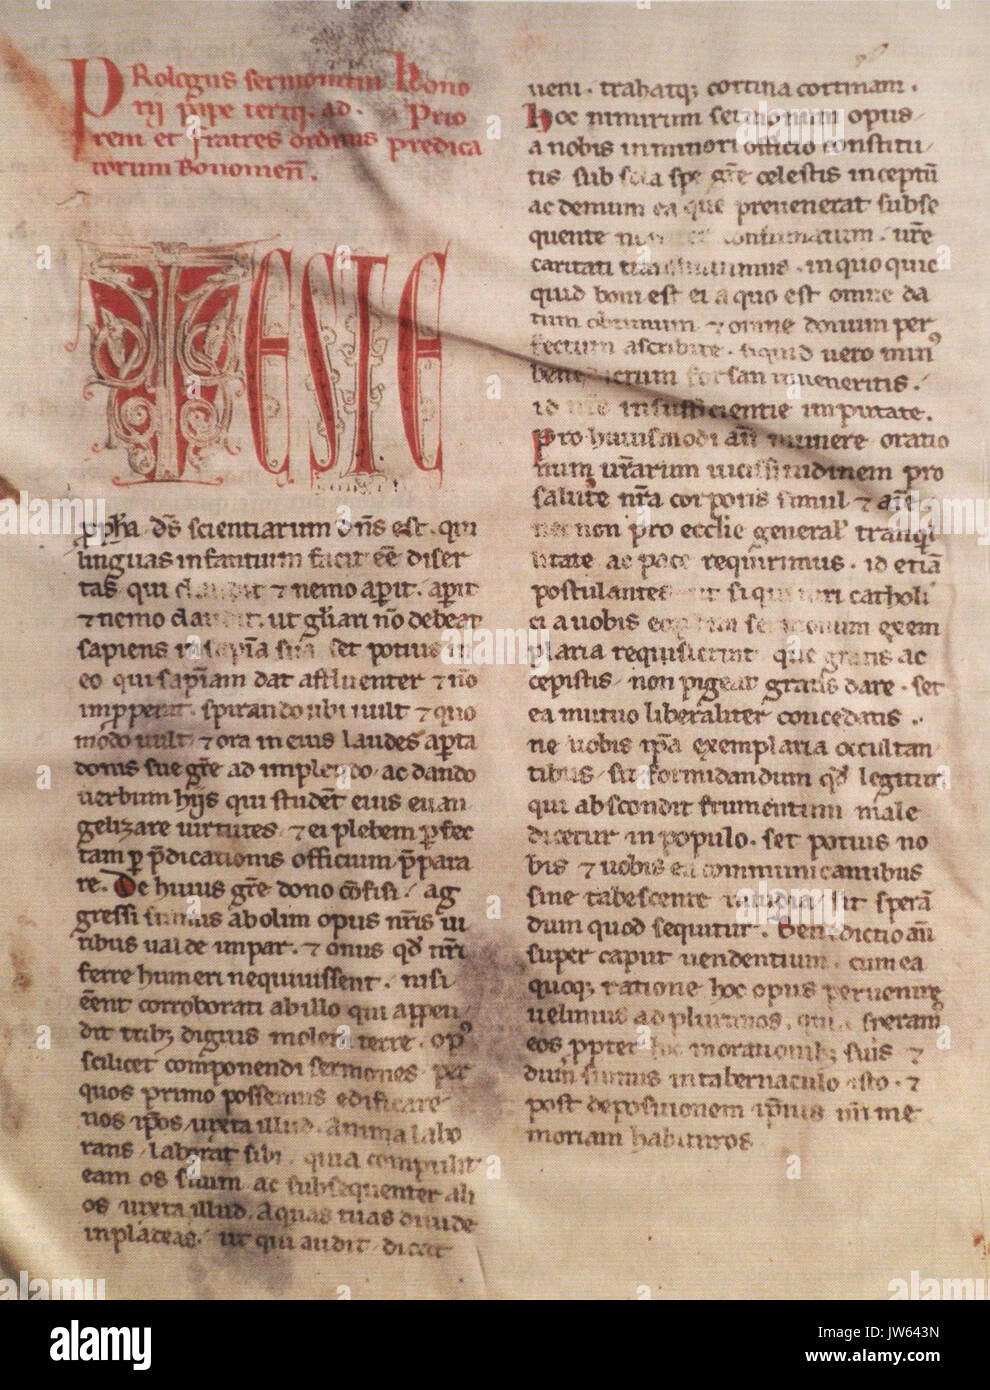 PRologus sermonum Hono
rij pape tertij. ad. Prio
rem et fratres ordinis predica
torum Bonomen̄.
TESTE
ꝓph̄a. ds̄ scientiarum dn̄s est. qui
linguas infantium facit eē̄ diser
tas qui claudit ⁊ nemo aꝑit. aꝑit
⁊ nemo claudit. ut gl̄iari nō debeat
sapiens in sapīa suā. set potius in
eo qui sapīam dat affluenter ⁊ nō
imꝓperat. spirando ubi uult ⁊ quo
modo uult ⁊ ora in eius laudes aꝑta
donis sue gr̄e ad implendo. ac dando
uerbum hijs qui student eius euan
gelizare uirtutes. ⁊ ei plebem ꝑfec
tam ꝑ p̄dicationis officium p̄para
re. De huius gr̄e dono cōfisi. ag
gressi sumus ab olim opus nr̄is ui
ribus ualde impar. ⁊ onus qd̄ nr̄i
ferre humeri nequiuissent. nisi
eēnt corroborati ab illo qui appen
dit tribꝫ digitis molem terre. opꝰ
scilicet componendi sermones per
quos primo possemus edificare
nos ip̄os iuxta illud. Anima labo
rans laborat sibi. quia compulit
eam os suum ac subsequenter ali
os iuxta illud. Aquas tuas diuide
in plateas. ut qui audit dicat
ueni. trahatqꝫ cortina cortinam.
Hoc nimirum sermonum opus
a nobis in minori officio constitu
tis sub sola spe gr̄e celestis inceptū
ac demum ea que preuenerat subse
quente confirmatum. ur̄e
caritati transmittimus. in quo quic
quid boni est ei a quo est omne da
tum obtimum ⁊ omne donum per
fectum ascribite. siquid uero minꝰ
benedictum forsan inueneritis.
id insufficientie imputate.
Pro huiusmodi aūt munere oratio
num ur̄arum uicissitudinem pro
salute nr̄a corporis simul ⁊ aīe
nec non pro ecclīe general' tranqͥl
litate ac pace requirimus. id etiā
postulantes ut si qui uiri catholi
ci a uobis sermonum exem
plaria requisierint que gratis ac
cepistis non pigeat gratis dare. set
ea mutuo liberaliter concedatis.
ne uobis ip̄a exemplaria occultan
tibus sit formidandum qd̄ legitur
qui abscondit frumentum male
dicetur in populo. set potius no
bis ⁊ uobis ea communicantibus
sine tabescente inuidia sit sperā
dum quod sequitur. Benedictio aūt
super caput uendentium. cum ea
quoqꝫ ratione hoc opus peruenire
uelimus ad plurimos. quia speramꝰ
eos ꝓpter hoc in orationibꝫ suis ⁊
dum sumus in tabernaculo isto. ⁊
post depositionem ip̄ius nr̄i me
moriam habituros
alamy
Image ID: JW643N
www.alamy.com